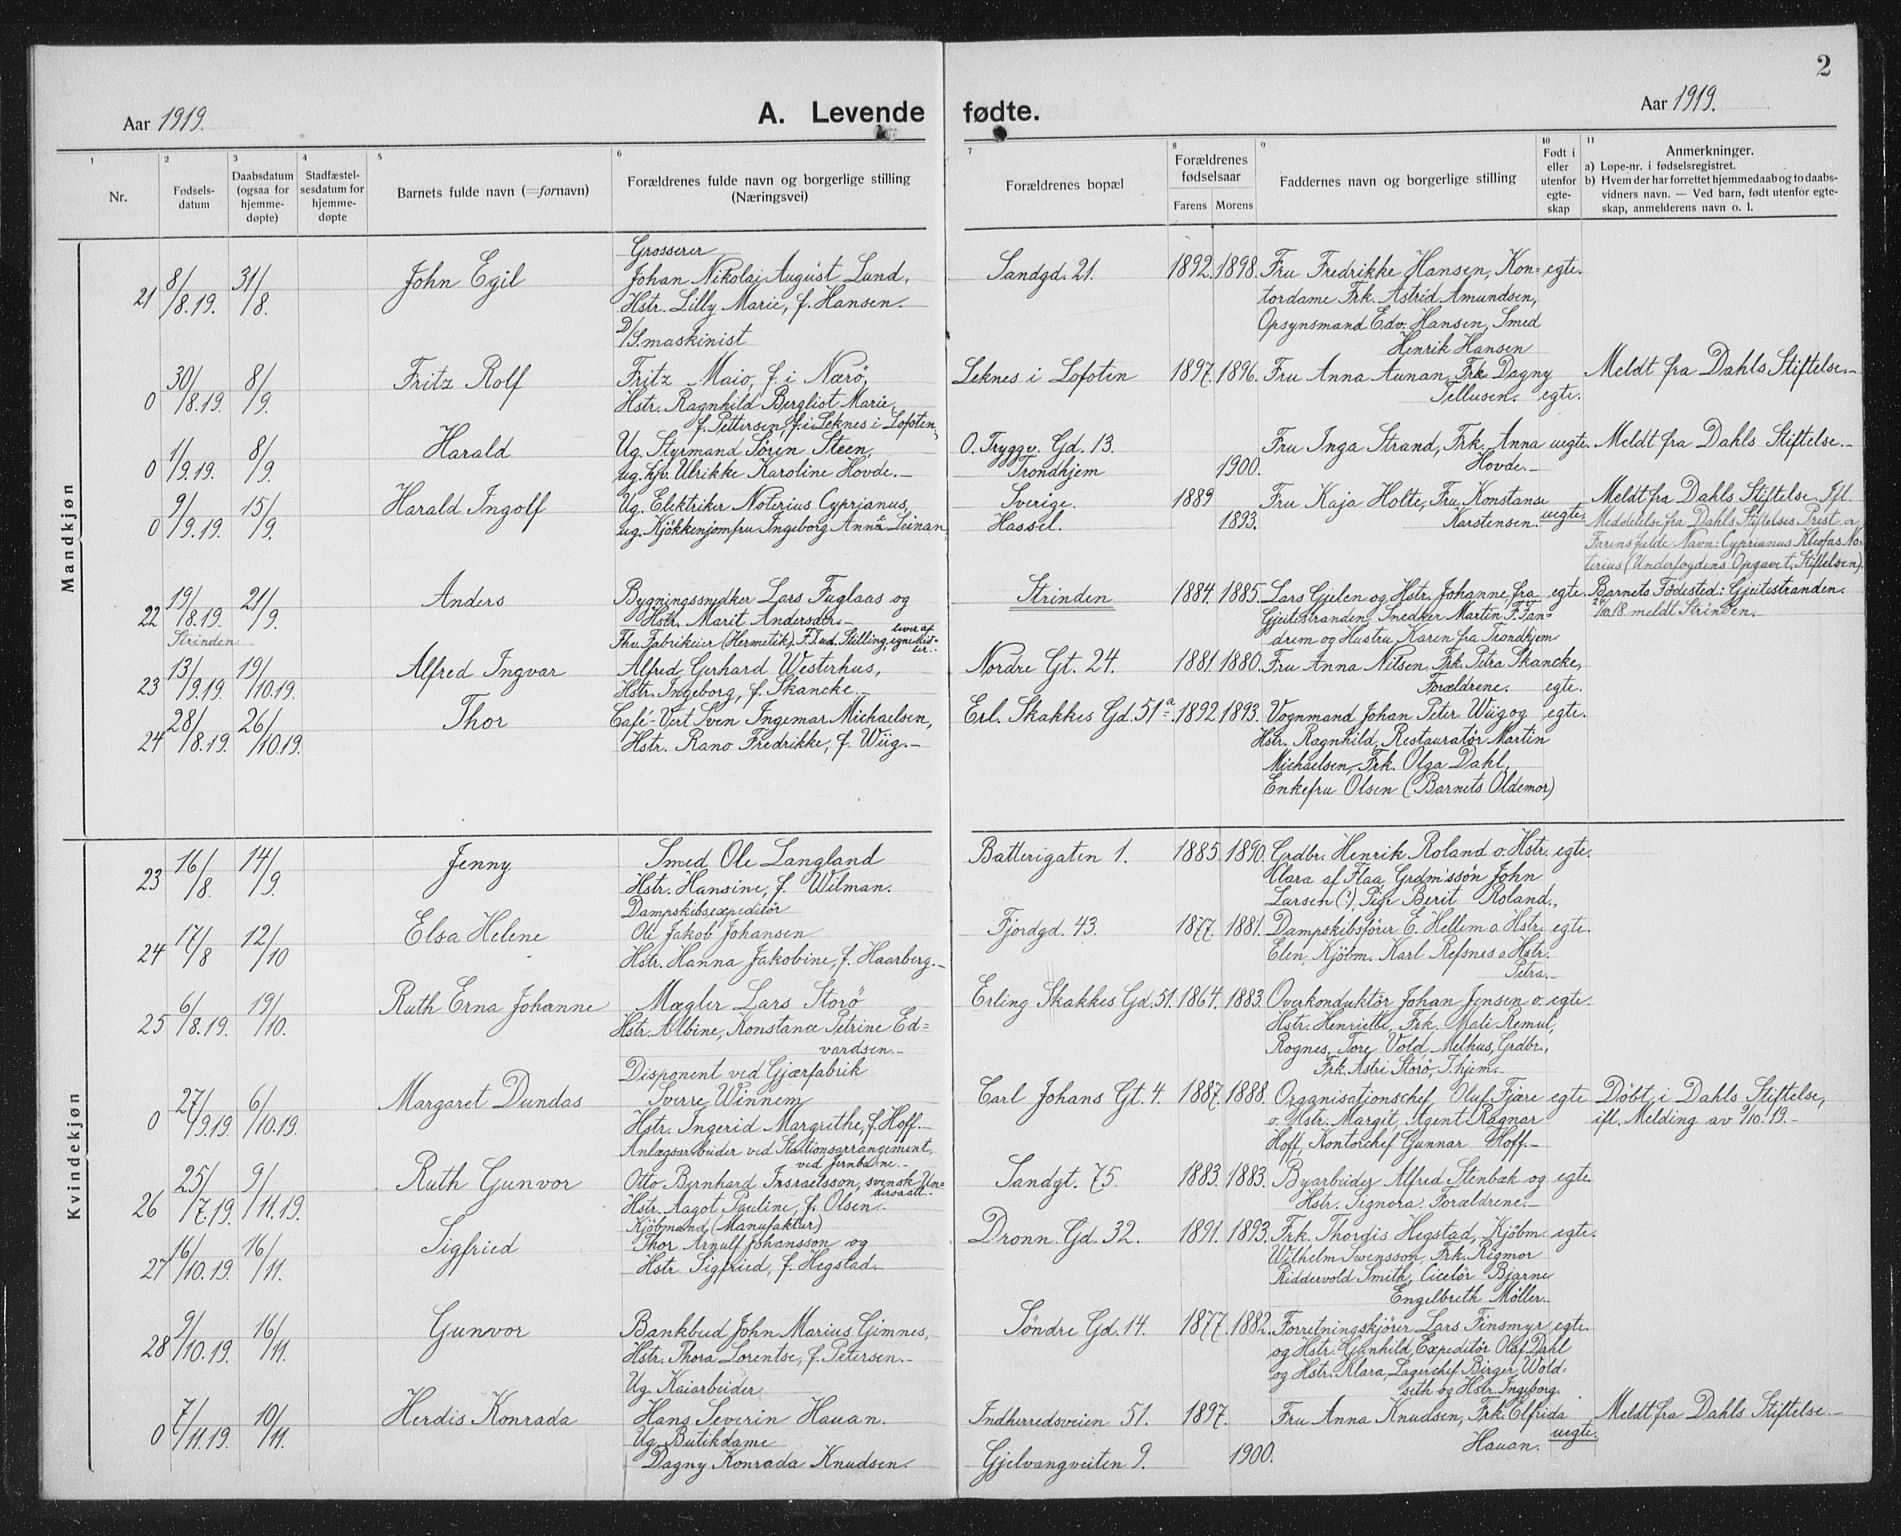 2
Aar 1919.
A. Levende fødte.
Aar 1919.
1
Nr.
2
Fødsels-
datum
3
Daabsdatum
(ogsaa for
hjemme-
døpte)
4
Stadfæstel-
sesdatum for
hjemme-
døpte
5
Barnets fulde navn (=fornavn)
6
Forældrenes fulde navn og borgerlige stilling
(Næringsvei)
7
Forældrenes bopæl
8
Forældrenes
fødselsaar
Farens Morens
9
Faddernes navn og borgerlige stilling
10
Født i
eller
utenfor
egte-
skap
11
Anmerkninger.
a) Løpe-nr. i fødselsregistret.
b) Hvem der har forrettet hjemmedaab og to daabs-
vidners navn. — Ved barn, født utenfor egte-
skap, anmelderens navn o. l.
Mandkjøn
21 8/8.19. 31/8. John Egil
Grosserer
Johan Nikolai August Lund,
Hstr. Lilly Marie, f. Hansen.
Sandgd. 21. 1892. 1898.
Fru Fredrikke Hansen, Kon= egte.
tordame Frk. Astrid Amundsen,
Opsynsmand Edv. Hansen, Smed
Henrik Hansen
0 30/8.19. 8/9. Fritz Rolf
D/S.maskinist
Fritz Maio, f. i Nærö,
Hstr. Ragnhild Bergliot Marie,
f. Pettersen, f. i Leknes i Lofoten.
Leknes i Lofoten 1897. 1896.
Fru Anna Aunan, Frk. Dagny
Tellusen. egte.
Meldt fra Dahls Stiftelse.-
0 1/9.19. 8/9. Harald
Ug. Styrmand Sören Steen,
ug. hjv. Ulrikke Karoline Hovde.-
O. Tryggv. Gd. 13.
Trondhjem 1900.
Fru Inga Strand, Frk. Anna uegte.
Hovde.-
Meldt fra Dahls Stiftelse.-
0 9/9.19. 15/9. Harald Ingolf
Ug. Elektriker Noterius Cyprianus,
ug. Kjökkenjomfru Ingeborg Anna Leinan.
Sverige. 1889
Hassel. 1893.
Fru Kaja Holte, Fru Konstanse
Karstensen. uegte.
Meldt fra Dahls Stiftelse. Ifl.
Meddelelse fra Dahls Stiftelses Prest er
Farens fulde Navn: Cyprianus Kleofas No-
terius (Underfogdens Opgave t. Stiftelsen)
22 19/8.19. 21/9. Anders
Strinden
Bygningssnedker Lars Fuglaas og
Hstr. Marit Andersdtr.-
Strinden 1884. 1885.
Lars Gjelen og Hstr. Johanne fra egte.
Gjeitestranden, Snedker Martin F. Tan-
drem og Hustru Karen fra Trondhjem
Barnets Födested: Gjeitestranden.
meldt Strinden.
23 13/9.19. 19/10.19. Alfred Ingvar
Alfred Gerhard Westerhus,
Hstr. Ingeborg, f. Skancke.-
Nordre Gt. 24. 1881. 1880.
Fru Anna Nilsen, Frk. Petra Skancke,
Forældrene. egte.
24 28/8.19. 26/10.19. Thor
Café-Vert Sven Ingemar Michaelsen,
Hstr. Rano Fredrikke, f. Wiig.-
Erl. Skakkes Gd. 51a. 1892 1893.
Vognmand Johan Peter Wiig og egte.
Hstr. Ragnhild, Restauratør Martin
Michaelsen, Frk. Olga Dahl,
Enkefru Olsen (Barnets Oldemor)
Kvindekjøn
23 16/8. 14/9. Jenny
Smed Ole Langland
Hstr. Hansine, f. Wilman.
Batterigaten 1. 1885. 1890.
Grdbr. Henrik Roland o. Hstr. egte.
Clara af Flaa, Grdm'ssön John
Larsen (?), Pige Berit Roland.
24 17/8 12/10 Elsa Helene
Dampskibsexpeditör
Ole Jakob Johansen
Hstr. Hanna Jakobine, f. Haarberg.-
Fjordgd. 43. 1877. 1881.
Dampskibsförer E. Hellem o. Hstr. egte.
Elen, Kjöbm. Karl Refsnes o. Hstr.
Petra.-
25 6/8.19. 19/10. Ruth Erna Johanne
Mægler Lars Storö
Hstr. Albine, Konstance Petrine Ed=
vardsen.-
Erling Skakkes Gd. 51. 1864. 1883.
Overkonduktör Johan Jensen o. egte.
Hstr. Henriette, Frk. Mali Remul,
Rognes, Tore Vold, Melhus, Grdbr.,
Frk. Astri Storö, T.hjem.-
0 27/9.19. 6/10.19. Margaret Dundas
Disponent ved Gjærfabrik
Sverre Winnem
Hstr. Ingerid Margrethe, f. Hoff.-
Carl Johans Gt. 4. 1887. 1888.
Organisationschef Oluf Fjære egte
o. Hstr. Margit, Agent Ragnar
Hoff, Kontorchef Gunnar Hoff.-
Döbt i Dahls Stiftelse,
ifl. Melding av 9/10.19.-
26 25/7.19. 9/11.19. Ruth Gunvor
Anlægsarbeider ved Stationsarrangement,
ved Jernbane.-
Otto Bernhard Insraelsson, svensk Un=
dersaatt.-
Hstr. Aagot Pauline, f. Olsen.
Sandgt. 75. 1883. 1883.
Byarbeider Alfred Stenbæk og egte.
Hstr. Signora. Forældrene.-
27 16/10.19. 16/11. Sigfried
Kjöbmand (Manufaktur)
Thor Arnulf Johansson og
Hstr. Sigfried, f. Hegstad.-
Dronn. Gd. 32. 1891. 1893.
Frk. Thordis Hegstad, Kjöbm. egte.
Wilhelm Svensson, Frk. Rigmor
Riddervold Smith, Ciselör Bjarne
Engelbreth Møller.
28 9/10.19. 16/11. Gunvor
Bankbud John Marius Gimnes,
Hstr. Thora Lorentse, f. Petersen.-
Söndre Gd. 14. 1877. 1882.
Forretningskjörer Lars Finsmyr egte.
og Hstr. Gunhild, Expeditör Olaf Dahl
og Hstr. Klara, Lagerchef Birger Wold=
seth og Hstr. Ingeborg.
0 7/11.19. 10/11. Herdis Konrada
Ug. Kaiarbeider
Hans Severin Hauan.
Ug. Butikdame
Dagny Konrada Knudsen.
Indherredsveien 51. 1897.
Gjelvangveiten 9. 1900.
Fru Anna Knudsen, Frk. Elfrida
Hauan. uegte.
Meldt fra Dahls Stiftelse.-